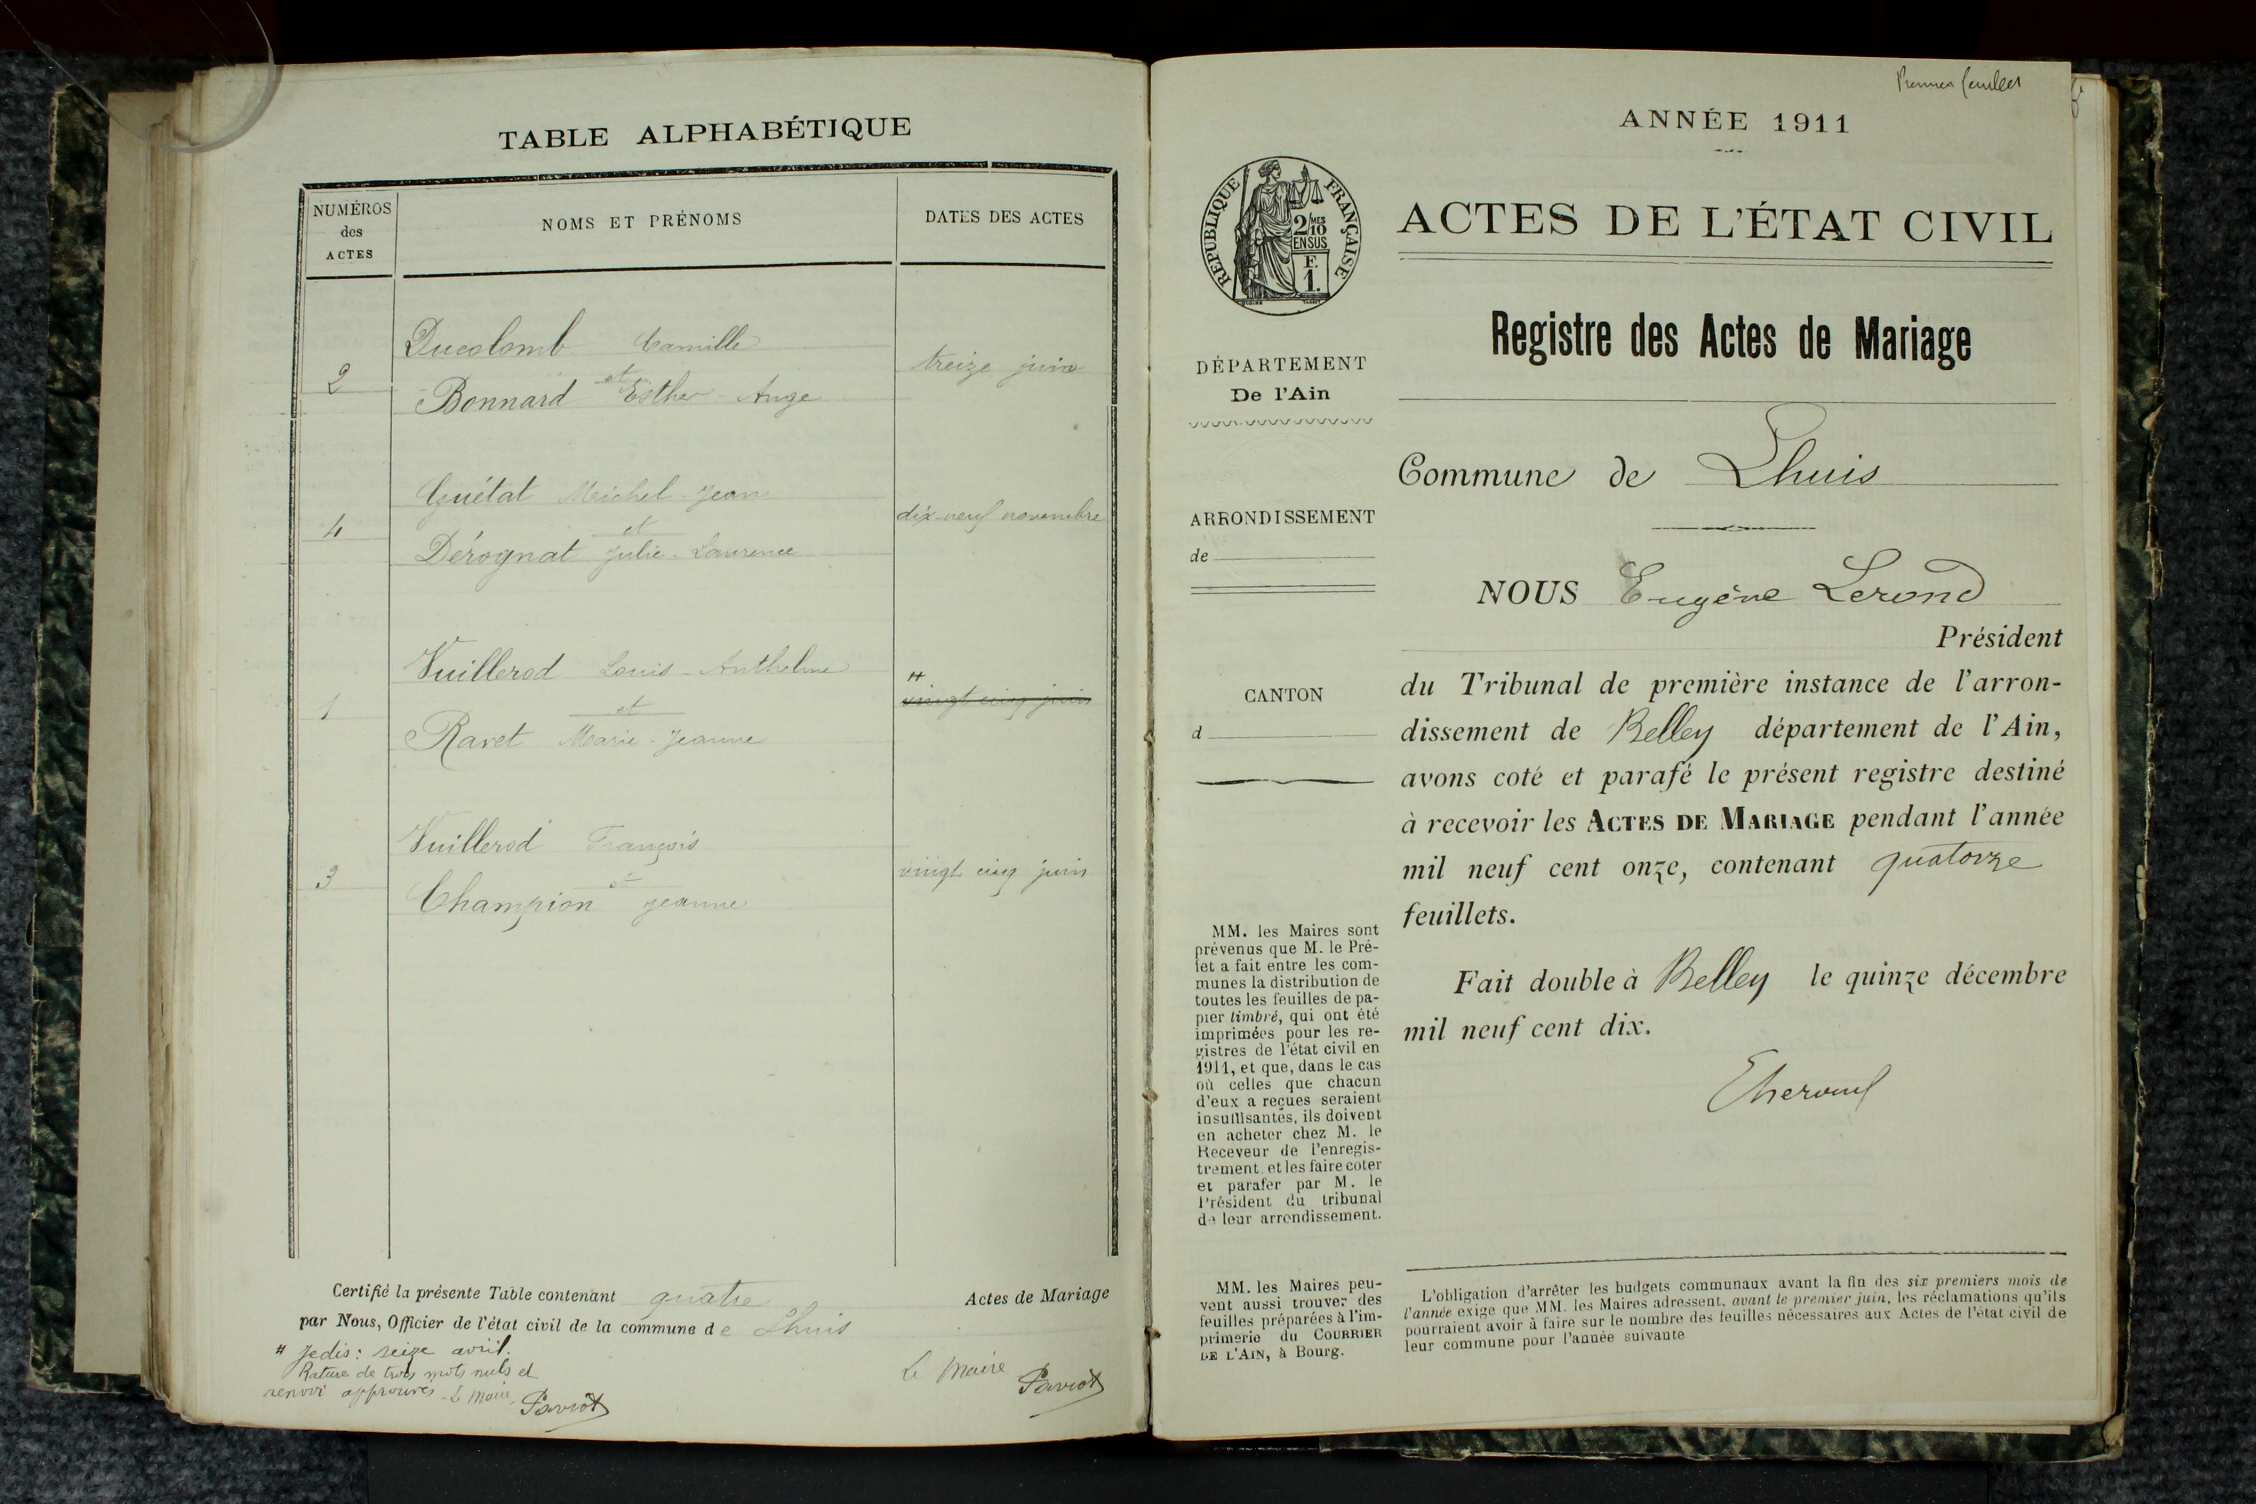 TABLE ALPHABÉTIQUE
NUMÉROS
des
ACTES
NOMS ET PRÉNOMS
DATES DES ACTES
Ducolomb Camille
et
2
treize juin
Bonnard Esther-Ange
Guétat Michel-Jean
4
et
dix-neuf novembre
Dérognat Julie-Laurence
Vuillerod Louis-Anthelme
#
1
et
vingt cinq juin
Ravet Marie-Jeanne
Vuillerod François
3
et
vingt cinq juin
Champion Jeanne
Certifié la présente Table contenant quatre Actes de Mariage
par Nous, Officier de l'état civil de la commune de Lhuis
# Je dis: seize avril.
Rature de trois mots nuls et
renvoi approuvés. Le Maire,
Paviot
Le Maire
Paviot
Premier feuillet
ANNÉE 1911
RÉPUBLIQUE FRANÇAISE
2/10 MES
EN SUS
F.
1.
ACTES DE L'ÉTAT CIVIL
Registre des Actes de Mariage
DÉPARTEMENT
De l'Ain
Commune de Lhuis
ARRONDISSEMENT
de
NOUS Eugène Lerond
Président
CANTON
d
du Tribunal de première instance de l'arron-
dissement de Belley département de l'Ain,
avons coté et parafé le présent registre destiné
à recevoir les ACTES DE MARIAGE pendant l'année
mil neuf cent onze, contenant quatorze
feuillets.
Fait double à Belley le quinze décembre
mil neuf cent dix.
MM. les Maires sont
prévenus que M. le Pré-
fet a fait entre les com-
munes la distribution de
toutes les feuilles de pa-
pier timbré, qui ont été
imprimées pour les re-
gistres de l'état civil en
1911, et que, dans le cas
où celles que chacun
d'eux a reçues seraient
insuffisantes, ils doivent
en acheter chez M. le
Receveur de l'enregis-
trement, et les faire coter
et parafer par M. le
Président du tribunal
de leur arrondissement.
MM. les Maires peu-
vent aussi trouver des
feuilles préparées à l'im-
primerie du COURRIER
DE L'AIN, à Bourg.
L'obligation d'arrêter les budgets communaux avant la fin des six premiers mois de
l'année exige que MM. les Maires adressent, avant le premier juin, les réclamations qu'ils
pourraient avoir à faire sur le nombre des feuilles nécessaires aux Actes de l'état civil de
leur commune pour l'année suivante